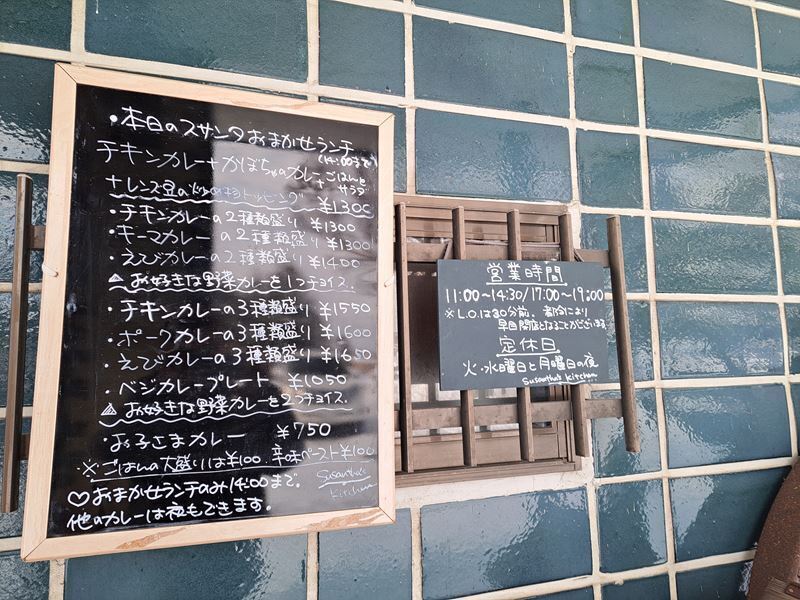 ・本日のスサンタおまかせランチ
(14:00まで)
チキンカレー+かぼちゃのカレー+ごはんとサラダ
+レンズ豆の炒め物トッピング ¥1300
・チキンカレーの2種類盛り ¥1300
・キーマカレーの2種類盛り ¥1300
・えびカレーの2種類盛り ¥1400
お好きな野菜カレーを1つチョイス.
・チキンカレーの3種類盛り ¥1550
・ポークカレーの3種類盛り ¥1600
・えびカレーの3種類盛り ¥1650
・ベジカレープレート ¥1050
お好きな野菜カレーを2つチョイス.
・お子さまカレー ¥750
※ごはんの大盛りは¥100. 辛味ペースト¥100
♡おまかせランチのみ14:00まで.
他のカレーは夜もできます.
Susantha's
kitchen
営業時間
11:00〜14:30/17:00〜19:00
※L.O.は30分前。都合により
早目閉店となることがございます
定休日
火・水曜日と月曜日の夜
Susantha's kitchen